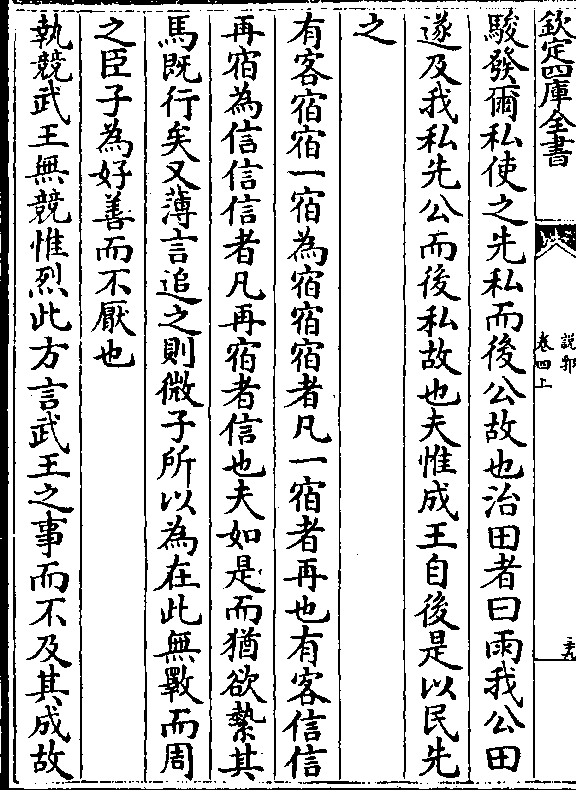 欽定四庫全書
說郛
卷四上
駿發爾私使之先私而後公故也治田者曰雨我公田
遂及我私先公而後私故也夫惟成王自後是以民先
之
有客宿宿一宿為宿宿宿者凡一宿者再也有客信信
再宿為信信信者凡再宿者信也夫如是而猶欲縶其
馬既行矣又薄言追之則微子所以為在此無斁而周
之臣子為好善而不厭也
執競武王無競惟烈此方言武王之事而不及其成故